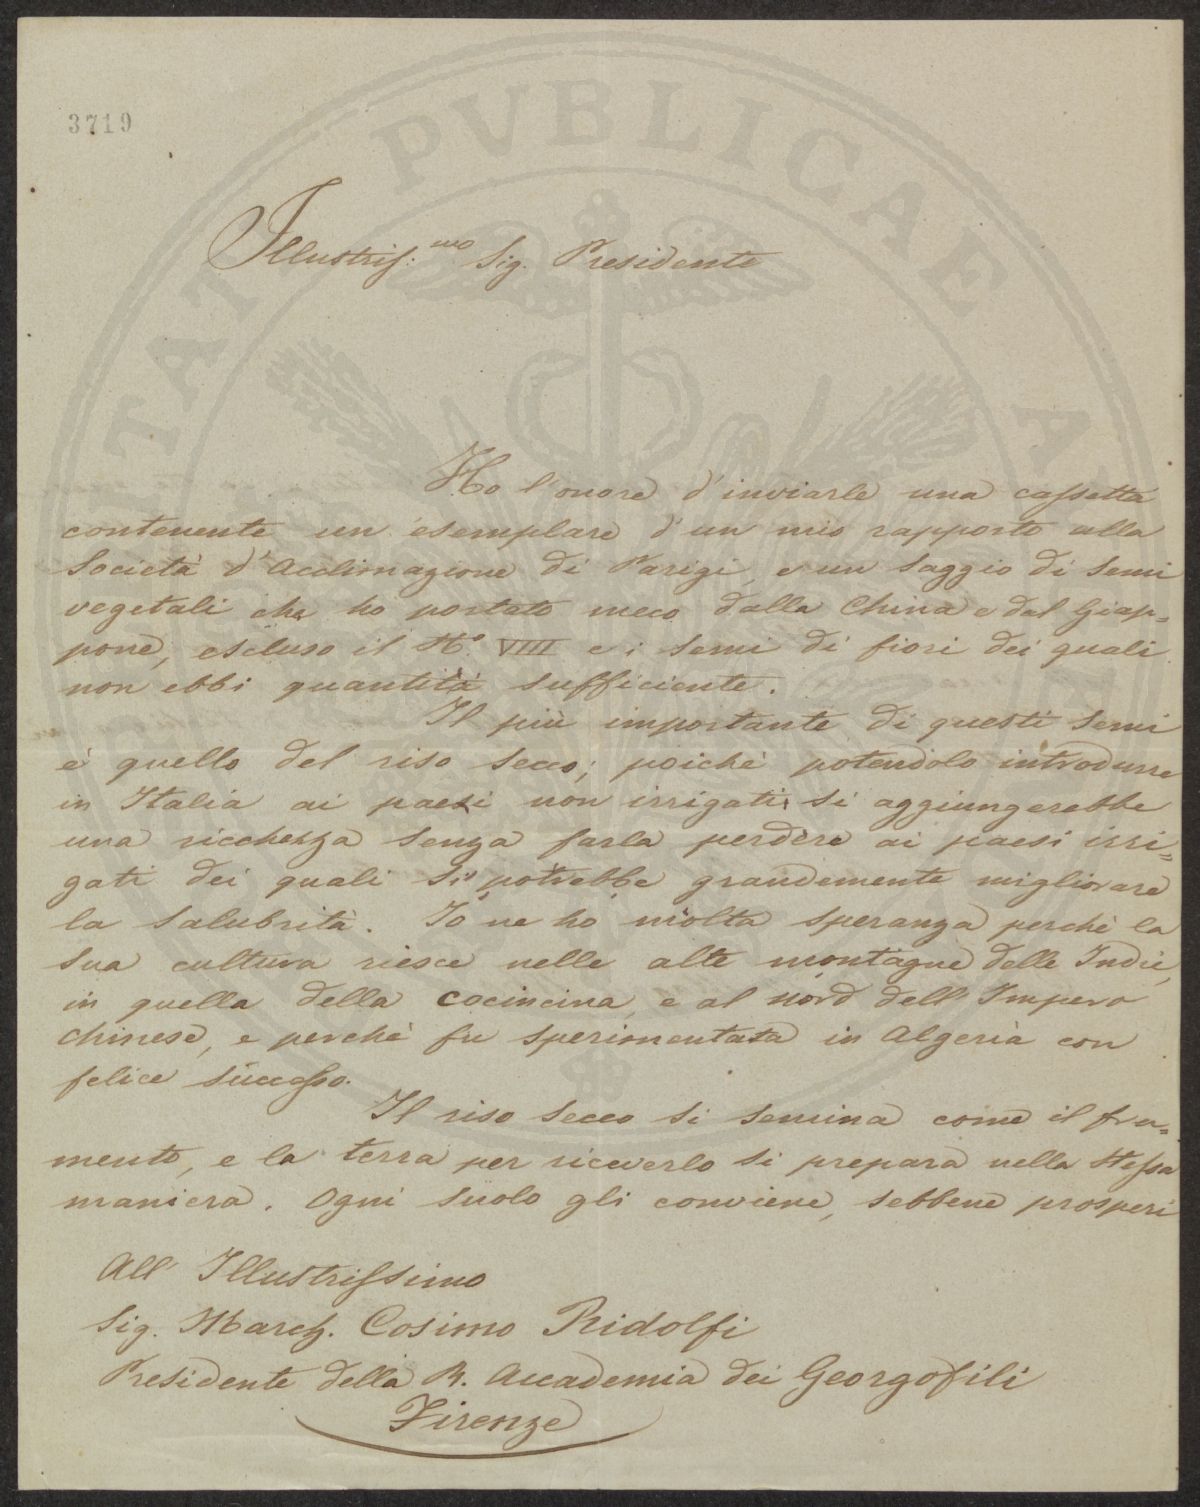 3719
PVBLICAE
Illustriss.mo Sig. Presidente
Ho l'onore d'inviarle una cassetta
contenente un esemplare d'un mio rapporto alla
Società d'Acclimazione di Parigi e un saggio di semi
vegetali che ho portato meco dalla China e dal Giap=
pone, escluso il N.o VIII e i semi di fiori dei quali
non ebbi quantità sufficiente.
Il più importante di questi semi
è quello del riso secco; poichè potendolo introdurre
in Italia ai paesi non irrigati si aggiungerebbe
una ricchezza senza farla perdere ai paesi irri=
gati dei quali si potrebbe grandemente migliorare
la salubrità. Io ne ho molta speranza perchè la
sua cultura riesce nelle alte montagne delle Indie,
in quella della Cocincina, e al nord dell'Impero
chinese, e perchè fu sperimentata in Algeria con
felice successo.
Il riso secco si semina come il fru=
mento, e la terra per riceverlo si prepara nella stessa
maniera. Ogni suolo gli conviene, sebbene prosperi
All'Illustrissimo
Sig. March. Cosimo Ridolfi
Presidente della R. Accademia dei Georgofili
Firenze